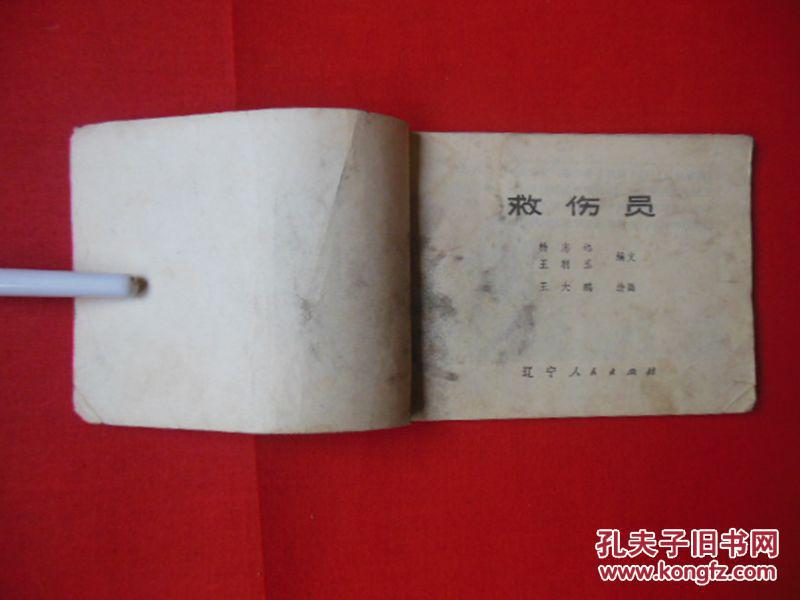 救伤员
杨志
王明玉
编文
王大鹏 绘画
辽宁人民出版社
孔夫子旧书网
www.kongfz.com